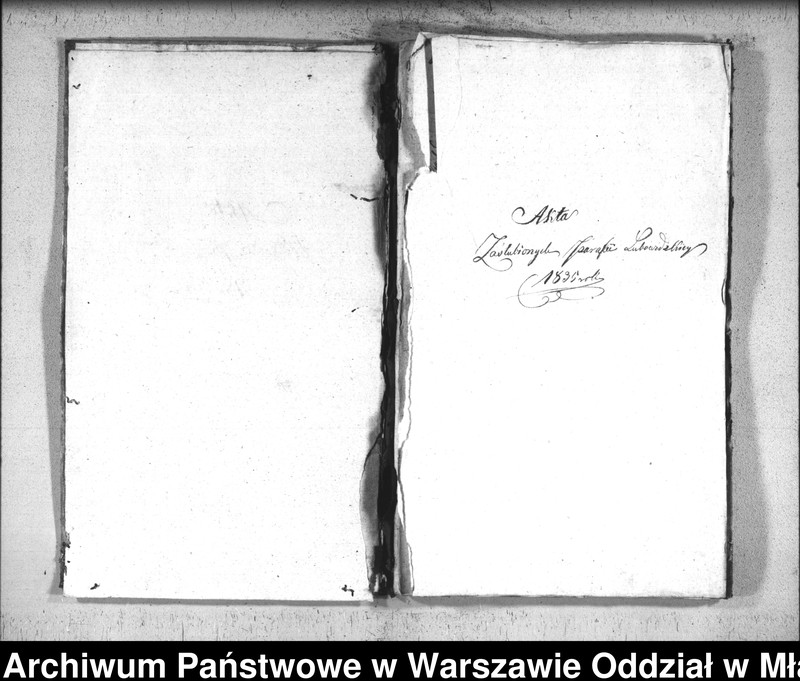 Akta
Zaslubionych Parafii Lubowidzkiey
1835 roku
Archiwum Państwowe w Warszawie Oddział w Mła